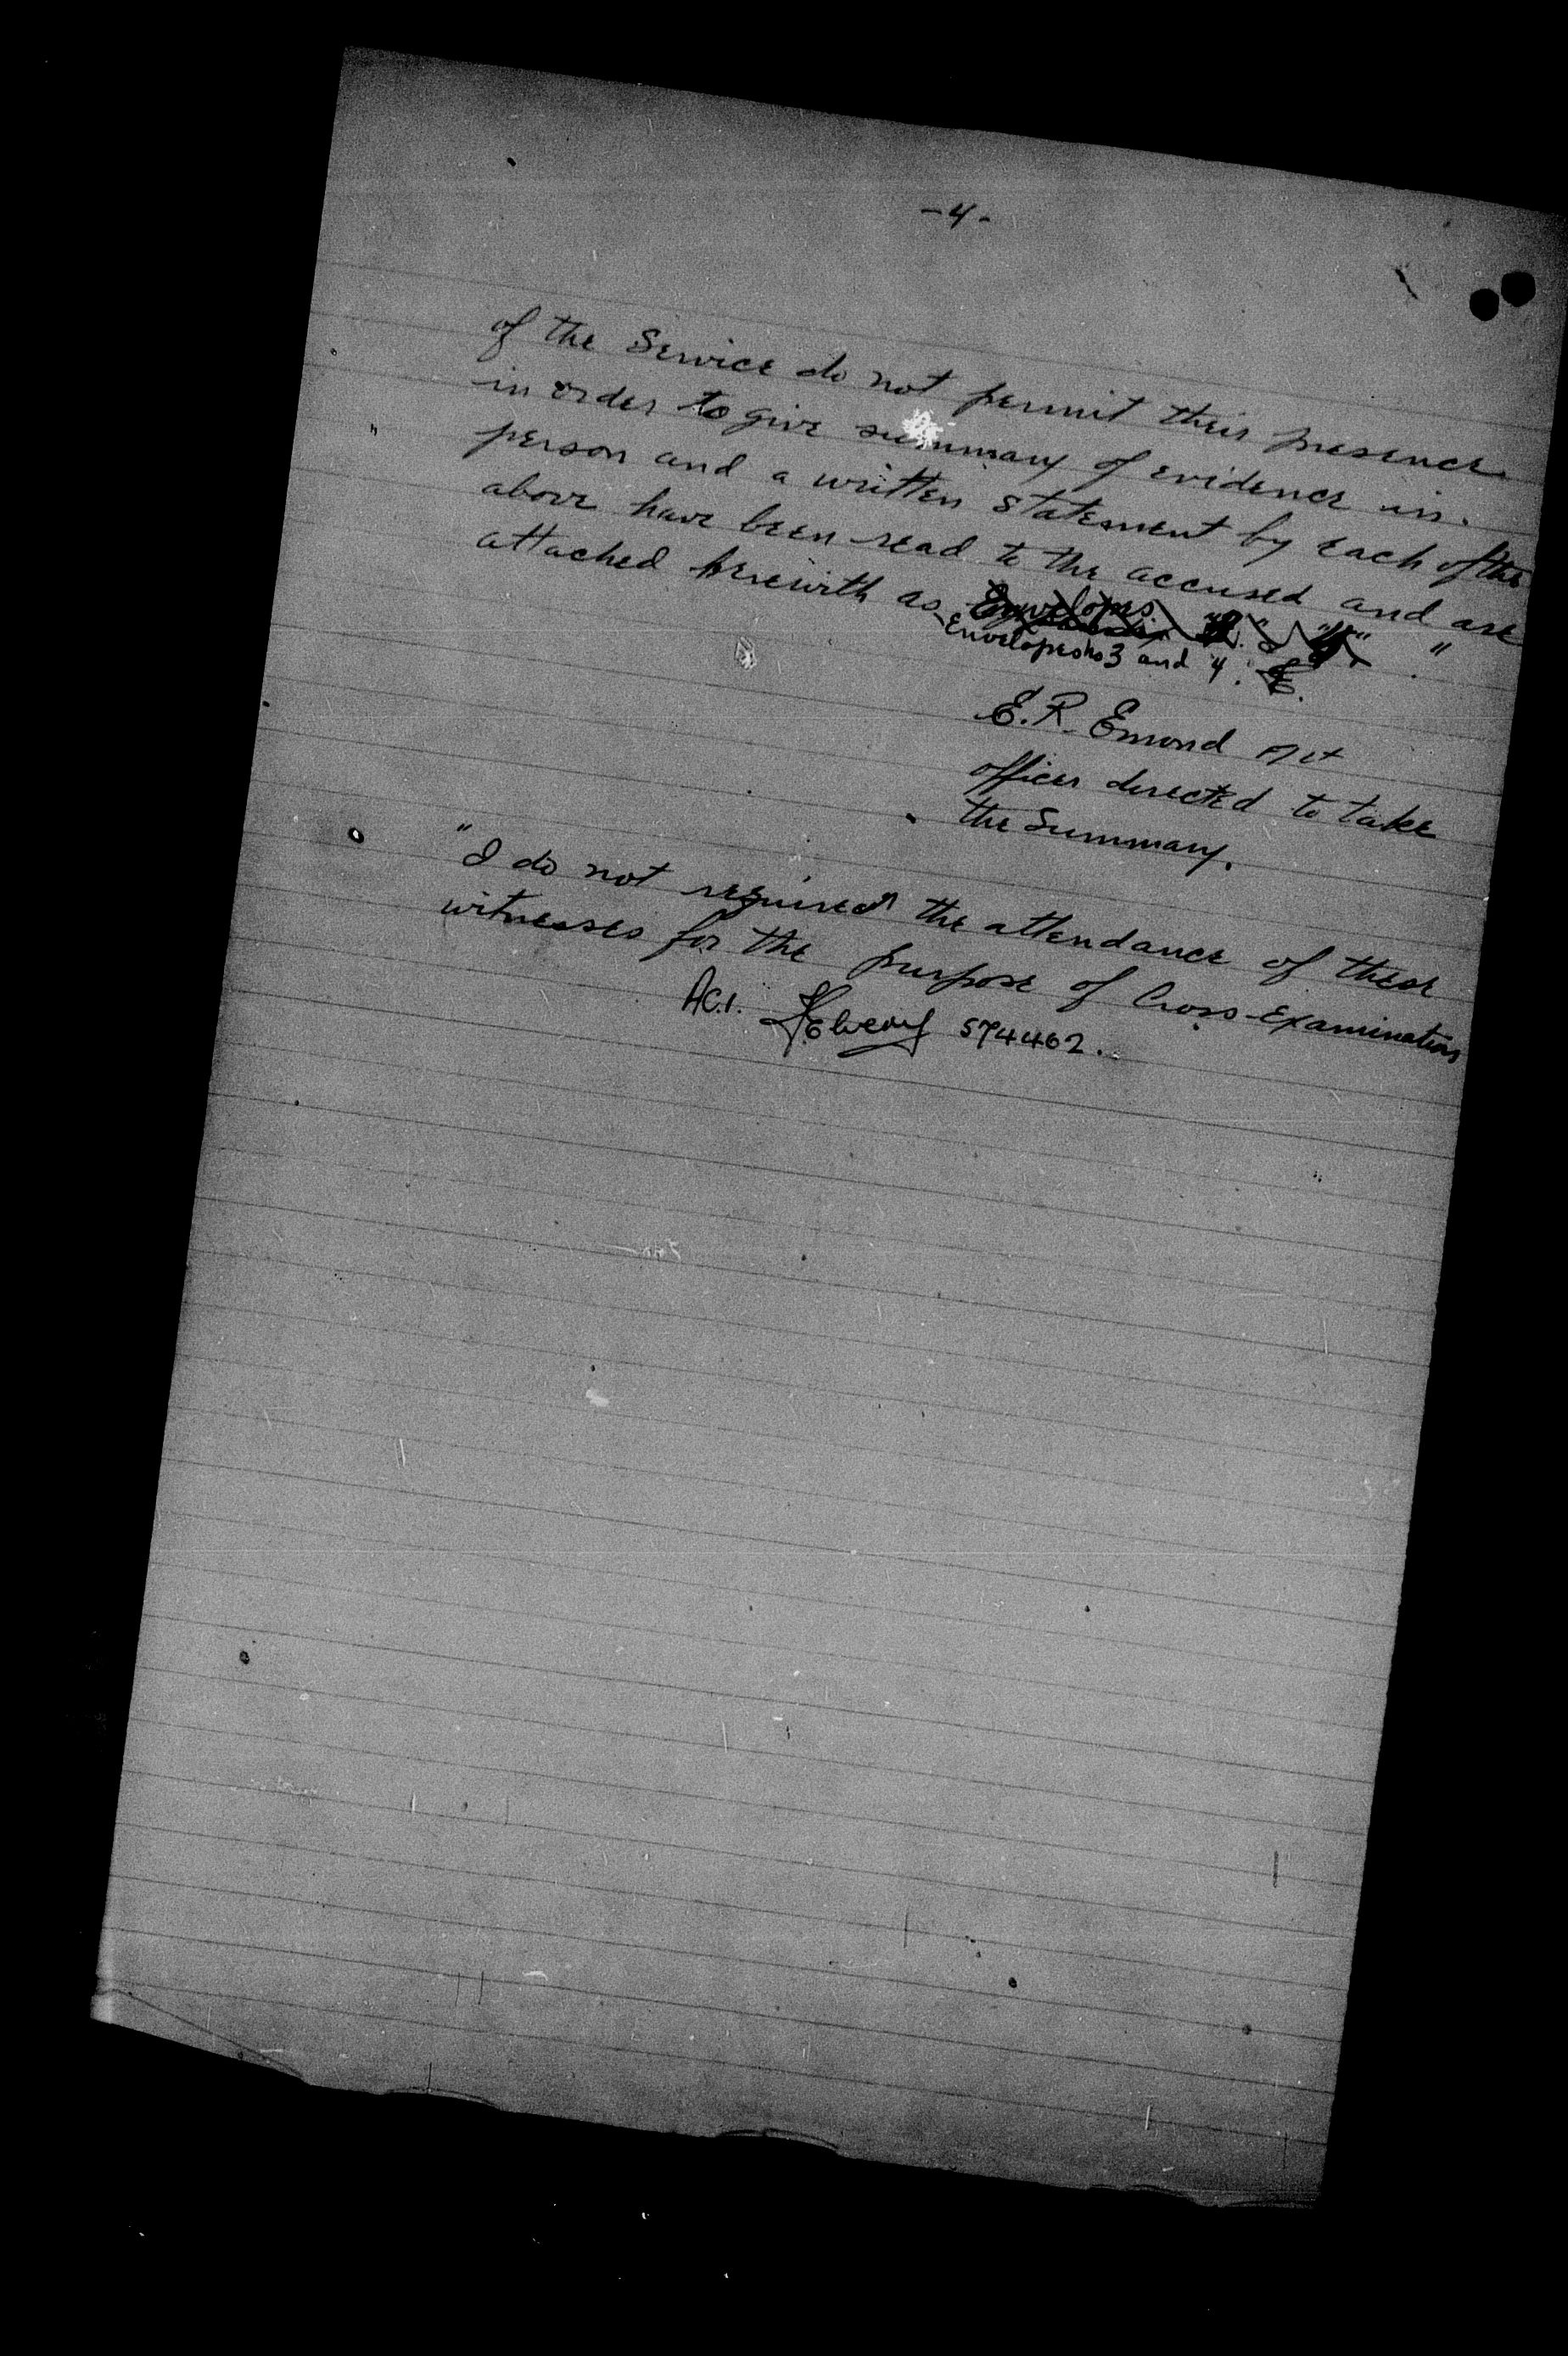 -4-
of the Service do not permit their presence
in order to give summary of evidence in
person and a written statement by each of the
above have been read to the accused and are
attached herewith as Envelopes
Envelopes No 3 and 4.
E.R. Emond
officer directed to take
the Summary.
"I do not required the attendance of these
witnesses for the purpose of Cross-Examination
AC.1. 574462.